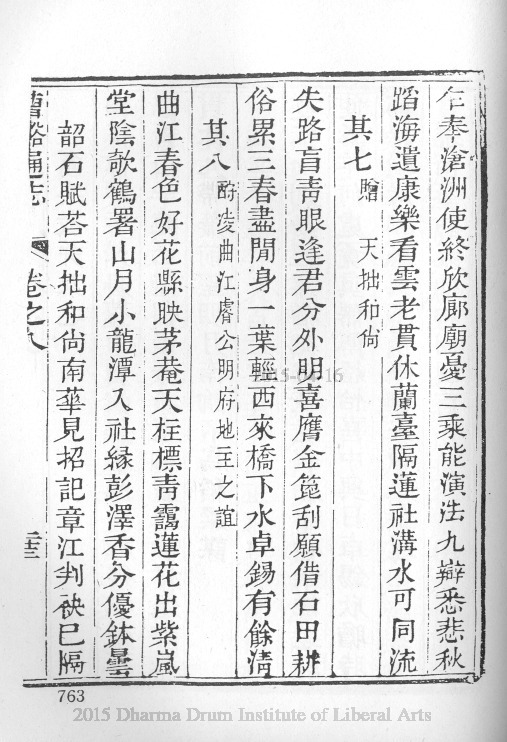 乍奉滄洲使終欣廊廟憂三乘能演法九辯悉悲秋
蹈海遺康樂看雲老貫休蘭臺隔蓮社溝水可同流
其七 贈 天拙和尙
失路盲靑眼逢君分外明喜膺金箆刮願借石田耕
俗累三春盡閒身一葉輕西來橋下水卓錫有餘淸
其八 酧凌曲江睿公明府地主之誼
曲江春色好花縣映茅菴天柱標靑靄蓮花出紫嵐
堂陰欹鶴署山月小龍潭入社緣彭澤香分優鉢曇
韶石賦荅天拙和尙南華見招記章江判袂已隔
曹谿通志 卷之八 二十三
2015-04-16
763
2015 Dharma Drum Institute of Liberal Arts